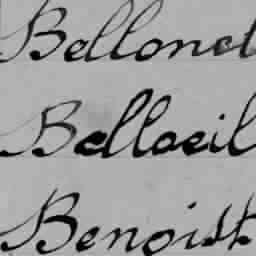 Bellonet
Bellaeil
Benoist